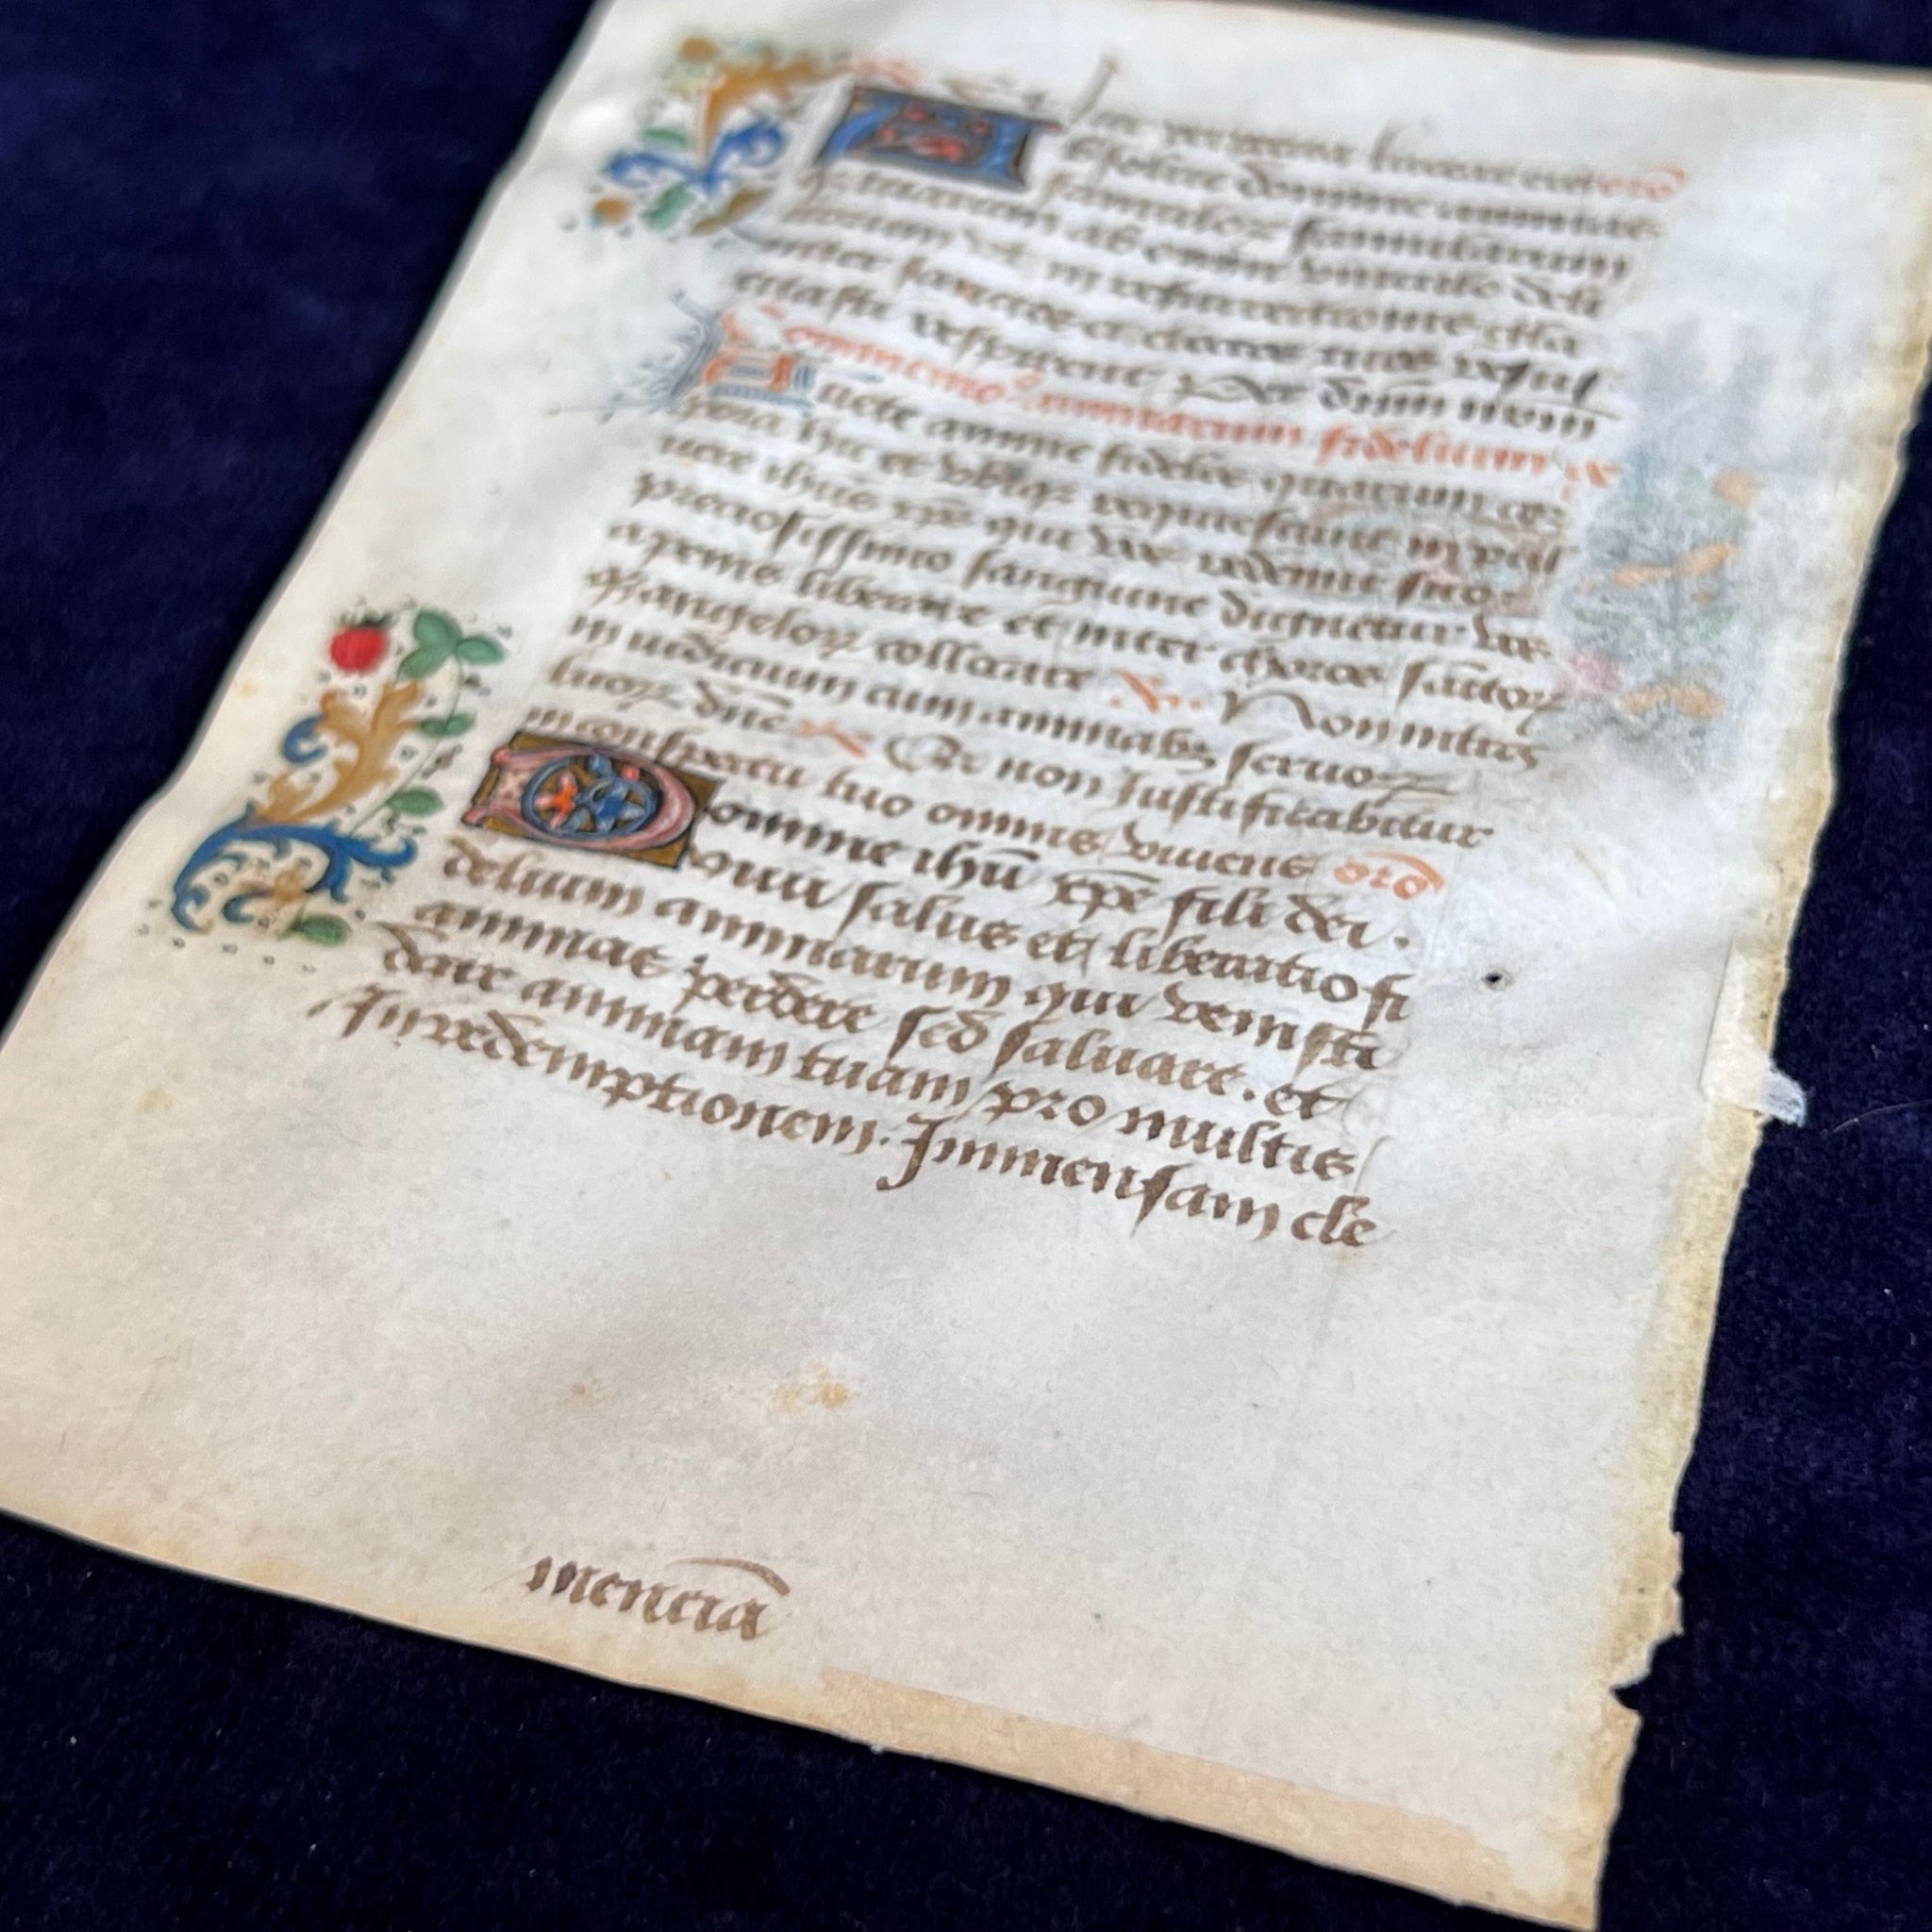 lux perpetua luceat eis orō
Absolue domine animas
famuloꝝ famularum
tuarum ab omni vinculo deli
ctorum vt in resurrectionis gl̄ia
inter sanctos et electos tuos resus
citati respirent Per dn̄m nr̄m
Cōmemo° animarum fidelium añ
Auete anime fideles quarum cor
pora hic et vbiqꝫ requiescunt in pul
uere ihūs xpē qui vos redemit suo
preciosissimo sanguine dignetur vos
a penis liberare et inter choros sāctoꝝ
angeloꝝ collocare V. Non intres
in iudicium cum animabꝫ seruoꝝ
tuoꝝ dn̄e R Qr non Justificabitur
in conspectu tuo omnis viuens orō
Domine ihū xpē fili dei.
viui salus et liberatio fi
delium animarum qui venisti
animas perdere sed saluare. et
dare animam tuam pro multis
In redemptionem. Immensam cle
menciā